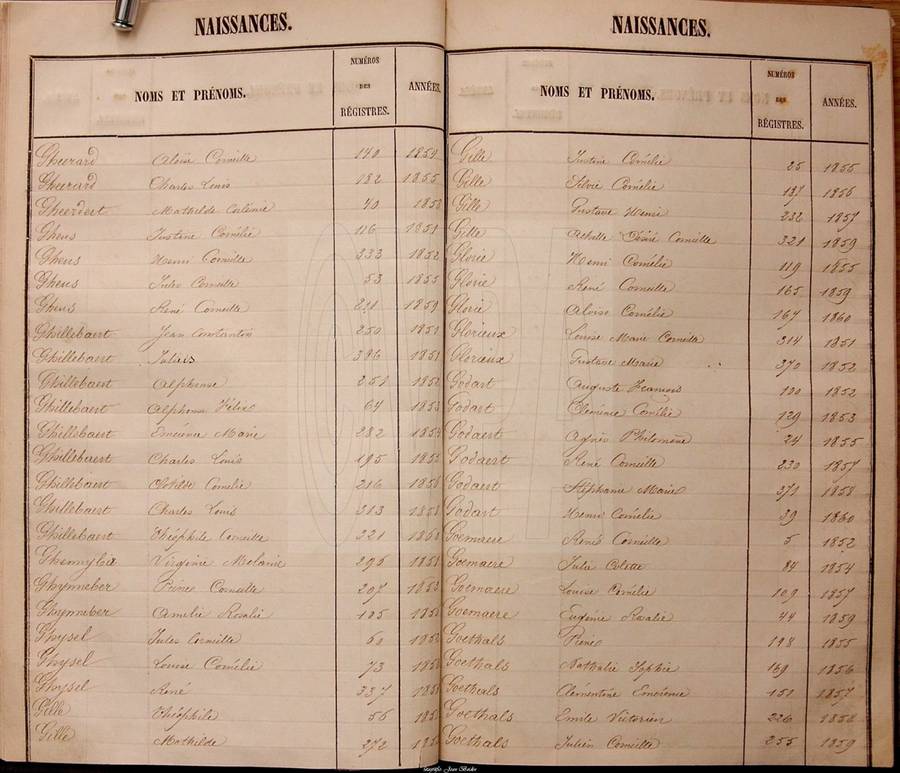 NAISSANCES.
NOMS ET PRÉNOMS. NUMÉROS DES RÉGISTRES. ANNÉES.
Gheerard Aloïse Corneille 140 1859
Gheerard Charles Louis 182 1855
Gheerdert Mathilde 40
Gheus Justine Cornélie 116 1851
Gheus Henri Corneille 333 1852
Gheus Jules Corneille 53 1855
Gheus René Corneille 211 1859
Ghillebaert Jean Constantin 250
Ghillebaert Julius 396 1851
Ghillebaert Alphonse 251 1852
Ghillebaert Alphonse Félix 64 1853
Ghillebaert Emérence Marie 282
Ghillebaert Charles Louis 195
Ghillebaert Clotilde Cornelie 216
Ghillebaert Charles Louis 313
Ghillebaert Théophile Corneille 221
Virginie Melanie 296
Ghynneber Corneille 207
Ghynneber Amelie Rosalie 105
Ghysel Jules Corneille 60
Ghysel Louise Cornélie 73
Ghysel René 337
Gille Théophile 56
Gille Mathilde 272
NAISSANCES.
NOMS ET PRÉNOMS. NUMÉROS DES RÉGISTRES. ANNÉES.
Gille Justine Cornélie 25 1855
Gille Silvie Cornélie 137 1856
Gille Gustave Henri 232 1857
Gille Achille Corneille 321 1859
Glorie Henri Cornélie 119 1855
Glorie René Corneille 165 1859
Glorie Aloïse Cornélie 167 1860
Glorieux Louise Marie Corneille 314 1851
Glorieux Gustave Marie 370 1852
Godart Auguste François 100 1852
Godart Clemence Cornélie 129 1853
Godaert Agnès Philomène 24 1855
Godaert René Corneille 230 1857
Godaert Stéphanie Marie 371 1858
Godart Henri Cornélie 39 1860
Goemaere René Corneille 5 1852
Goemaere Julie Colette 84 1854
Goemaere Louise Cornélie 109 1857
Goemaere Eugénie Rosalie 44 1859
Goethals René 198 1855
Goethals Nathalie Sophie 169 1856
Goethals Clémentine Emerence 151 1857
Goethals Emile Victorien 226 1858
Goethals Julien Corneille 255 1859